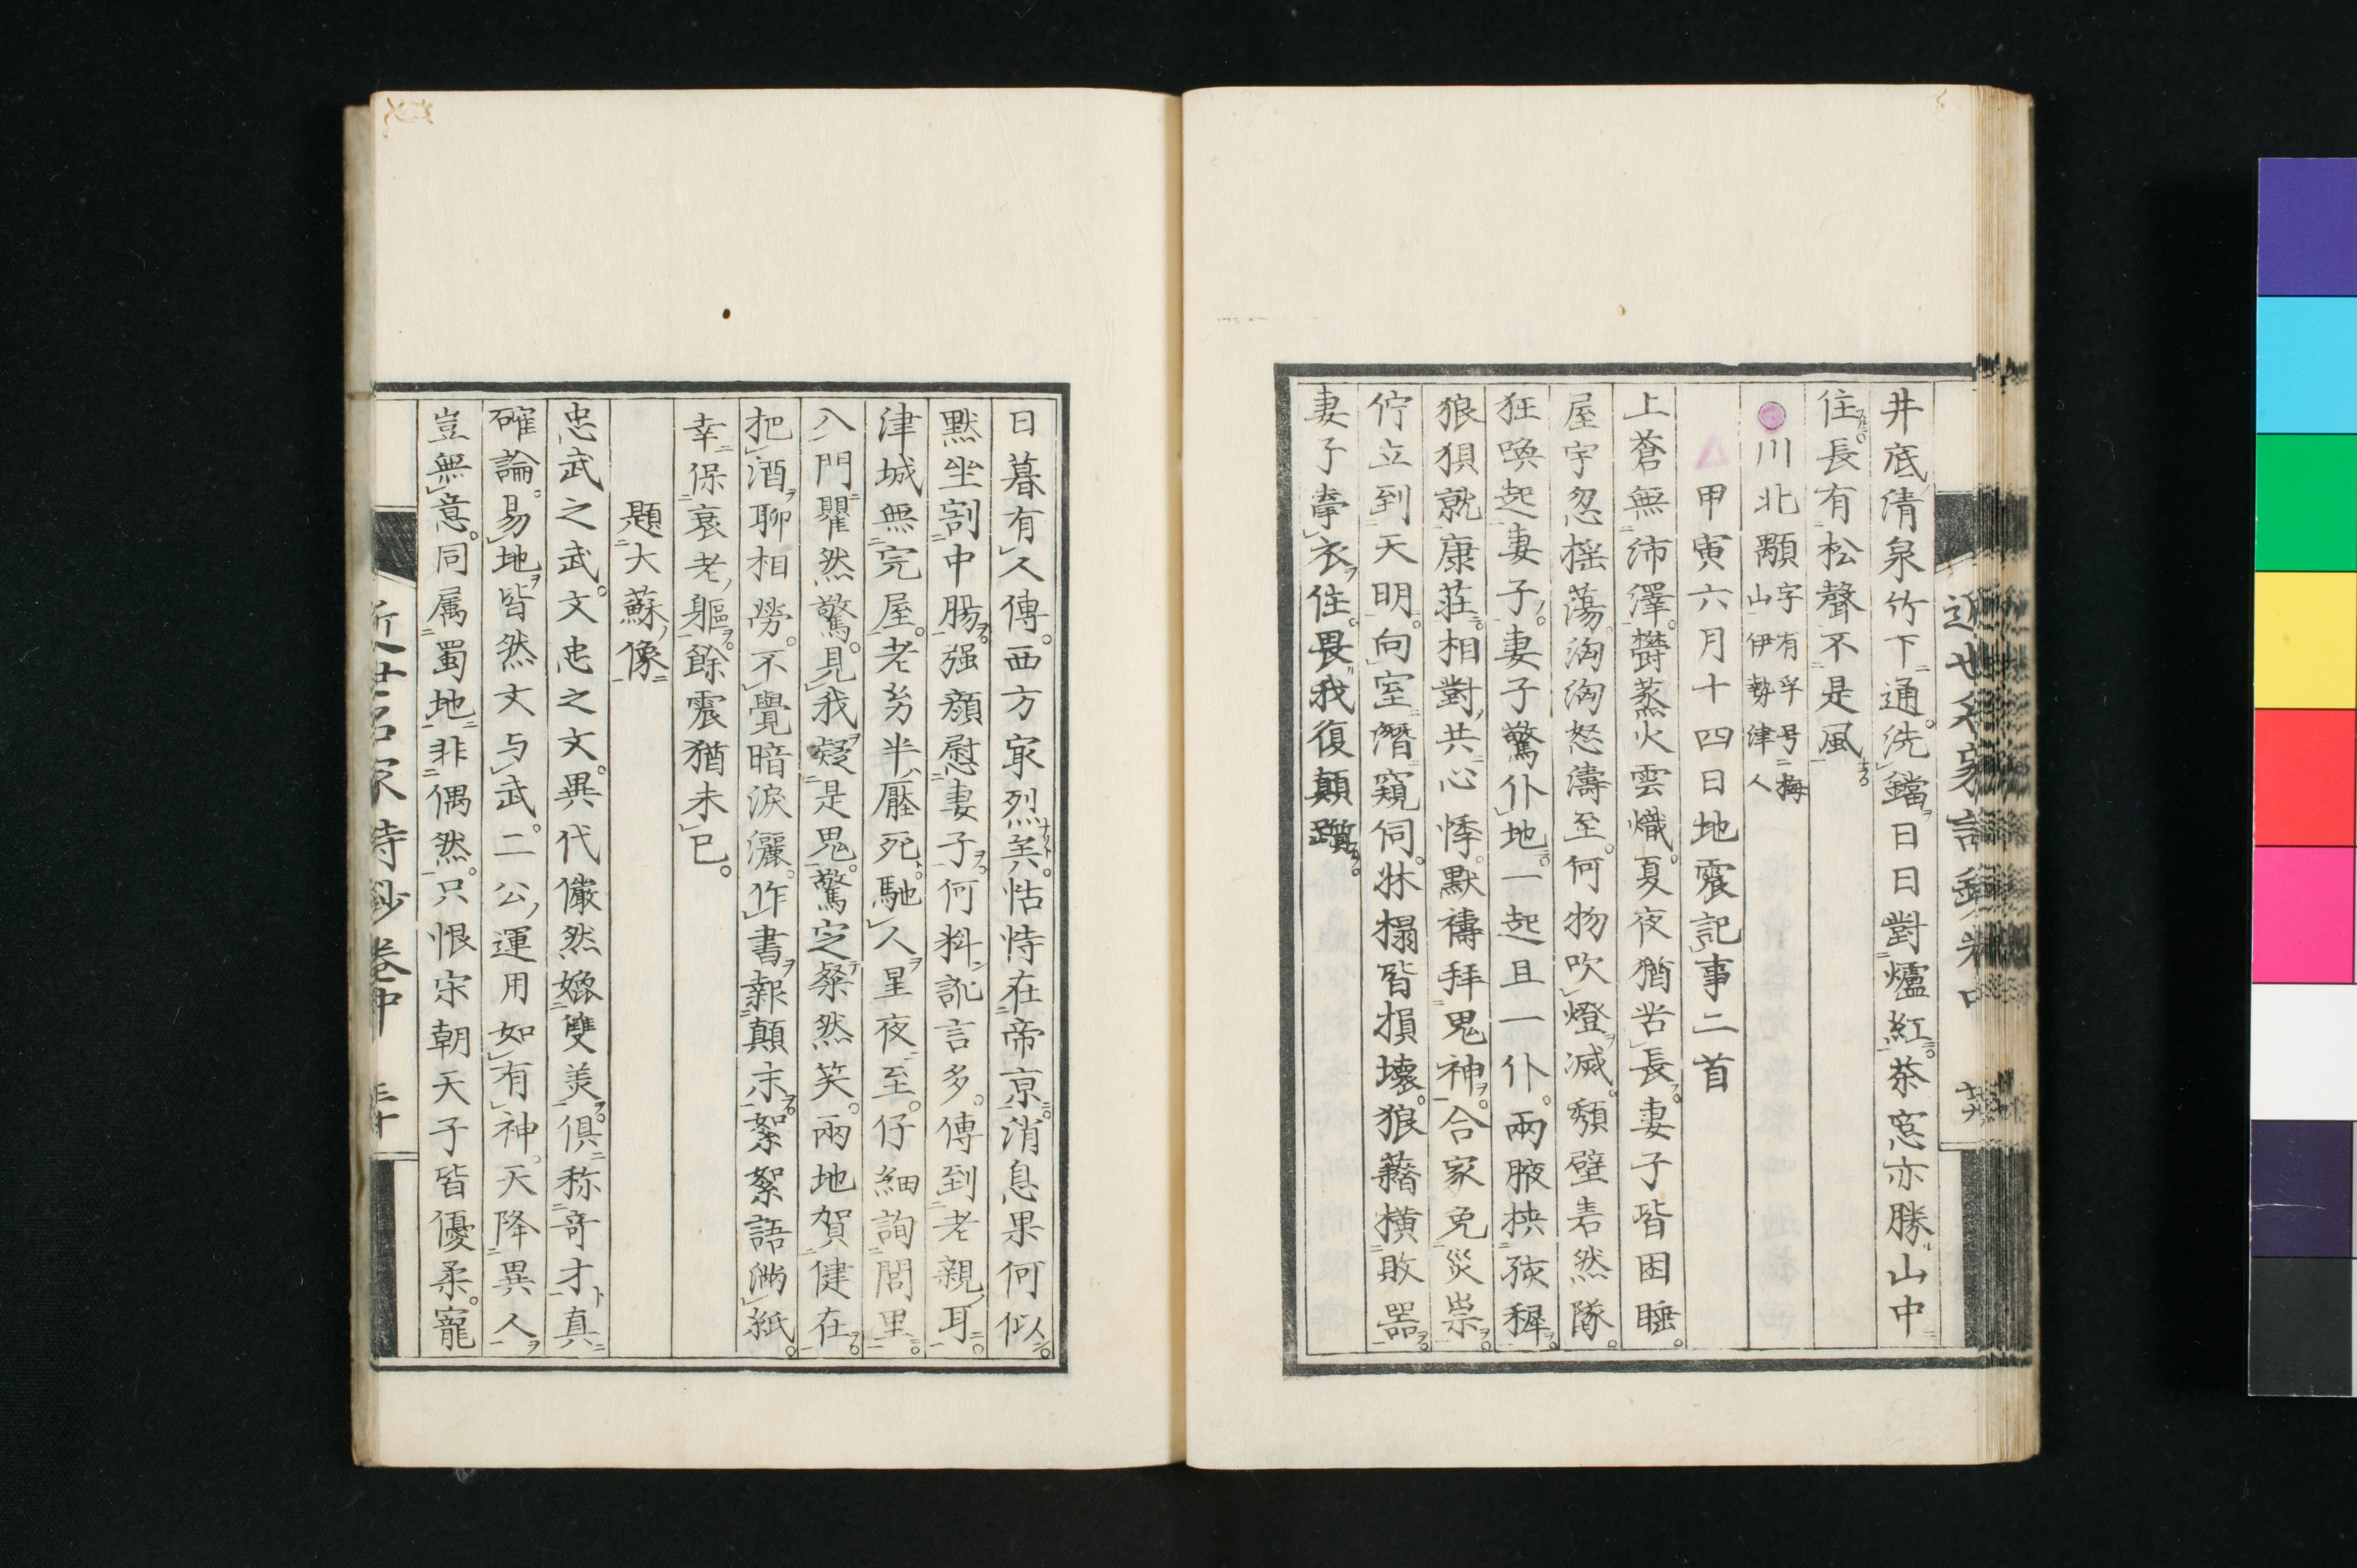 井底清泉竹下通。洗鐺日日對爐紅。茶窓亦勝山中
住。長有松聲不是風
川北顒字有孚号梅
山伊勢津人
甲寅六月十四日地震記事二首
上蒼無沛澤。欝蒸火雲熾。夏夜猶苦長。妻子皆困睡。
屋宇忽揺蕩。洶洶怒濤至。何物吹燈滅。頽壁砉然隊。
狂喚起妻子。妻子驚仆地。一起且一仆。兩腋挾孩穉。
狼狽就康莊。相對共心悸。默禱拜鬼神。合家免災祟。
佇立到天明。向室潛窺伺。牀榻皆損壊。狼藉横敗器。
妻子牽衣住。畏我復顛躓。
日暮有人傳。西方冣烈矣。怙恃在帝京。消息果何似。
默坐割中腸。强顔慰妻子。何料訛言多。傳到老親耳。
津城無完屋。老㓜半壓死。馳人星夜至。仔細詢閭里。
入門瞿然驚。見我疑是鬼。驚定粲然笑。兩地賀健在。
把酒聊相勞。不覺暗淚灑。作書報顛末。絮絮語滿紙。
幸保衰老軀。餘震猶未已。
題大蘇像
忠武之武。文忠之文。異代儼然媲雙美。俱称奇才真
確論。易地皆然文与武。二公運用如有神。天降異人
豈無意。同属蜀地非偶然。只恨宋朝天子皆優柔。寵
近世名家詩鈔卷中